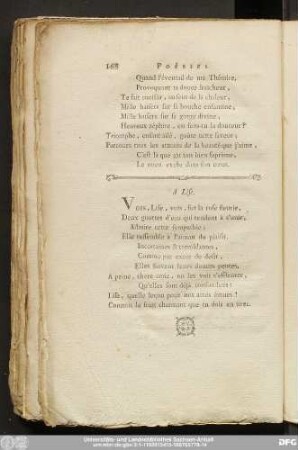 168 Poésies
Quand l'éventail de ma Thémire,
Provoquant ta douce fraîcheur,
Te fait
Mille baisers sur sa bouche enfantine,
Mille baisers sur sa gorge divine,
Heureux zéphire, en sens-tu la douceur?
Triomphe, enfant ailé, goûte cette faveur:
Parcours tous les attraits de la beauté que j'aime,
C'est là que git ton bien suprême,
Le mien est dans son cœur.
A Lise.
Vois, Lise, vois, sur la rose fleurie,
Deux gouttes d'eau qui tendent à s'unir,
Admire cette sympathie:
Elle ressemble à l'attrait du plaisir.
Incertaines & tremblantes,
Comme par excès de desir,
Elles suivent leurs douces pentes.
A peine, chere amie, on les voit s'effleurer,
Qu'elles sont déjà confondues:
Lise, quelle leçon pour nos ames émues!
C'est un charmant que tu dois en tirer.
Universitäts- und Landesbibliothek Sachsen-Anhalt
DFG